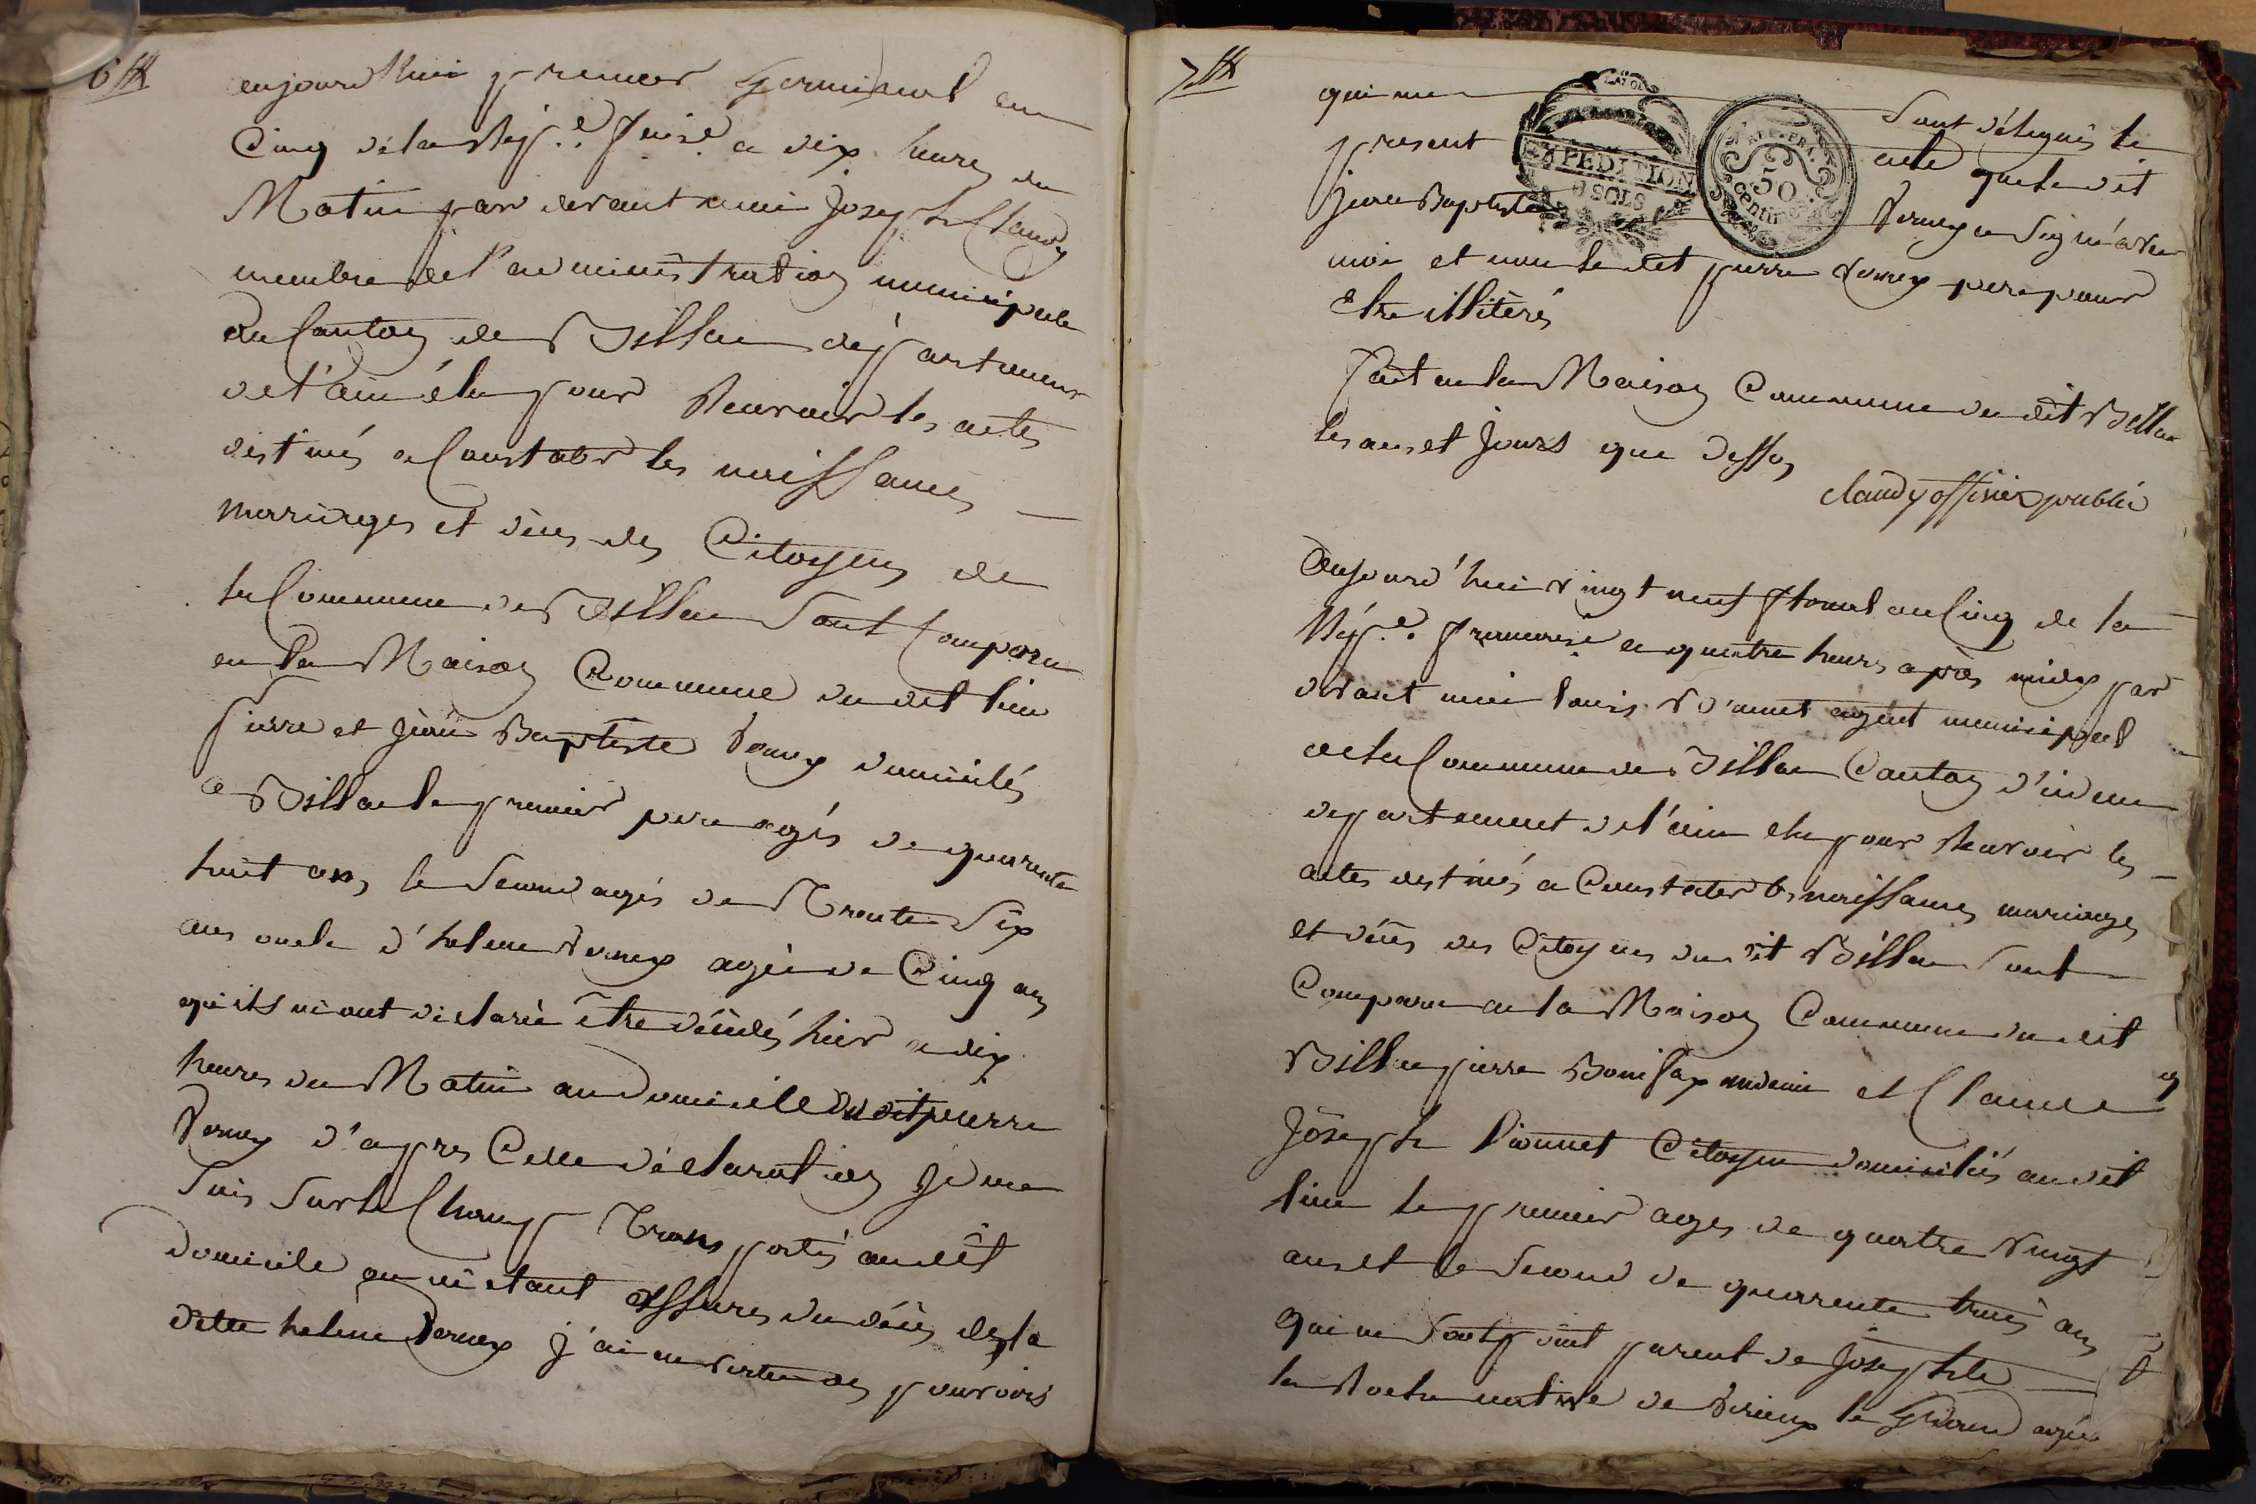 6
aujourd'hui premier germinal an
Cinq de la Rep.e fraise a dix heures du
Matin par devant moi Joseph Claudy
membre de l'administration municipale
du Canton de Villar département
de l'ain élu pour Recevoir les actes
destinés a Constater les naissances
mariages et déces des Citoyens de
la Commune de Villar Sont Comparu
en la Maison Commune du dit lieu
pierre et Jean Baptiste Verney domiciliés
a Villar le premier pere agés de quarente
huit ans, le Second agés de Trente Six
ans oncle d'helene Verney agée de Cinq ans
qu'ils m'ont declaré être décédés hier a dix
heures du Matin au Domicile du dit pierre
Verney d'apres Cette déclaration Je me
Suis Sur le Champ Transportés au dit
Domicile ou m'etant assures du déces de la
ditte helene Verney j'ai en vertu des pouvoirs
7
qui me Sont délégués le
present acte que le dit
EXPEDITION
SOLS
50
Centim
Jean Baptiste Verney a Signé avec
moi et non le dit pierre Verney pere pour
Etre illiterés
fait en la Maison Commune du dit Villar
les an et Jours que dessus
claudy officier public
Aujourd'hui vingt neuf floreal an Cinq de la
Rep.e francaise a quatre heures après midy par
devant moi louis agent municipal
de la Commune de Villar Canton d'idem
departement de l'ain elu pour Recevoir les
actes destinés a Constater les naissances mariages
et déces des Citoyens du dit Villar Sont
Comparu en la Maison Commune du dit
Villar pierre Bonifax et Claude
Joseph Citoyen domiciliés au dit
lieu le premier ages de quatre vingt
ans et le Second de quarente trois ans
qui ne Sont point parent de Josephte
la Roche native de le Grand agée